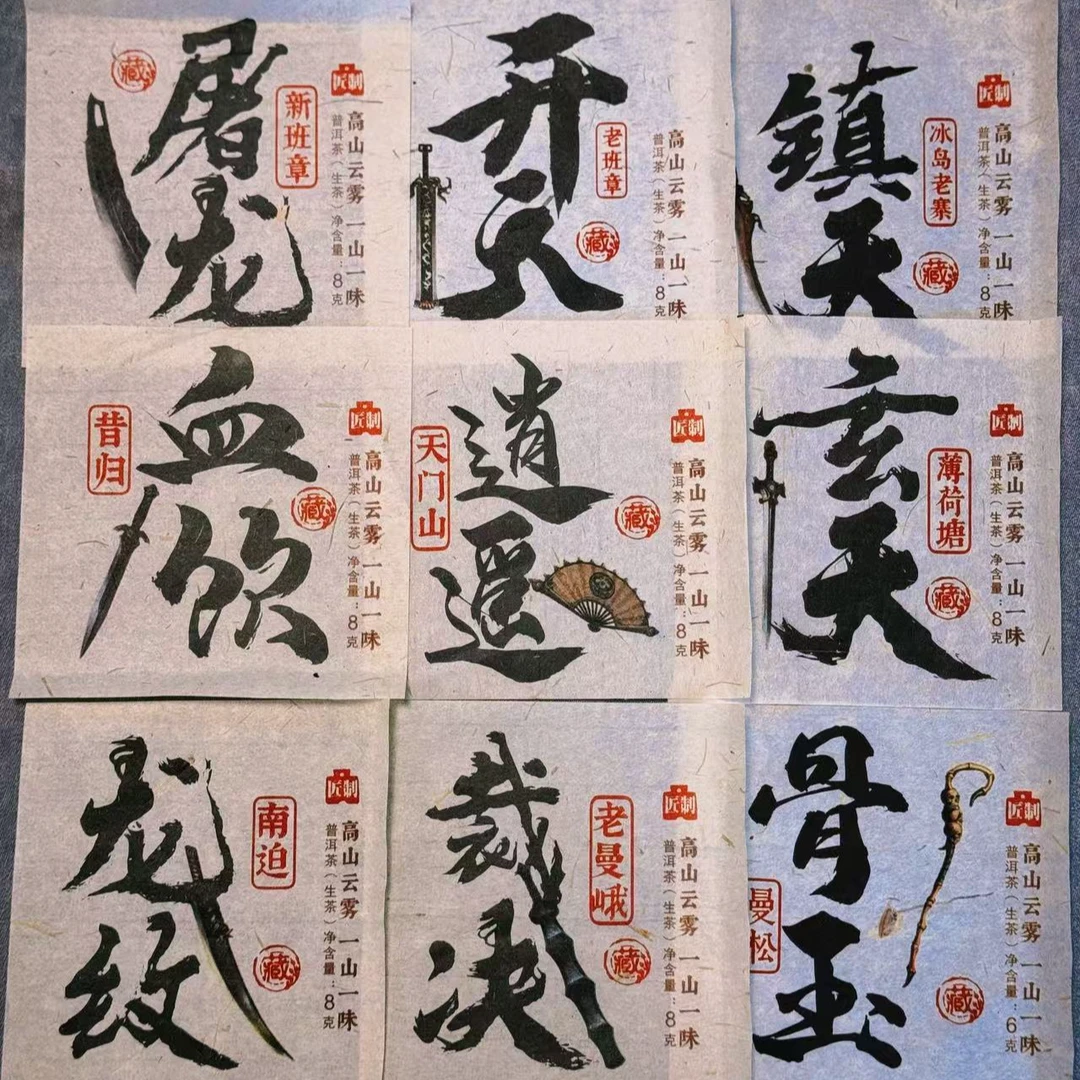 藏
屠龙
新班章
匠制
高山云雾 一山一味
普洱茶（生茶）净含量：8克
开天
老班章
藏
高山云雾 一山一味
普洱茶（生茶）净含量：8克
镇天
冰岛老寨
藏
匠制
高山云雾 一山一味
普洱茶（生茶）净含量：8克
昔归
血饮
藏
匠制
高山云雾 一山一味
普洱茶（生茶）净含量：8克
天门山
逍遥
藏
匠制
高山云雾 一山一味
普洱茶（生茶）净含量：8克
玄天
薄荷塘
藏
匠制
高山云雾 一山一味
普洱茶（生茶）净含量：8克
龙纹
南迫
藏
匠制
高山云雾 一山一味
普洱茶（生茶）净含量：8克
裁决
老曼峨
藏
匠制
高山云雾 一山一味
普洱茶（生茶）净含量：8克
曼松
骨玉
藏
匠制
高山云雾 一山一味
普洱茶（生茶）净含量：6克